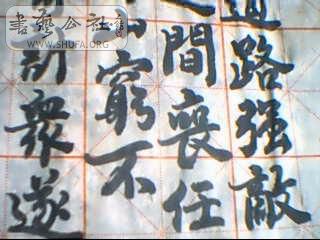 過路强敵
間喪任
窮不
討衆遂
書藝公社
WWW.SHUFA.ORG